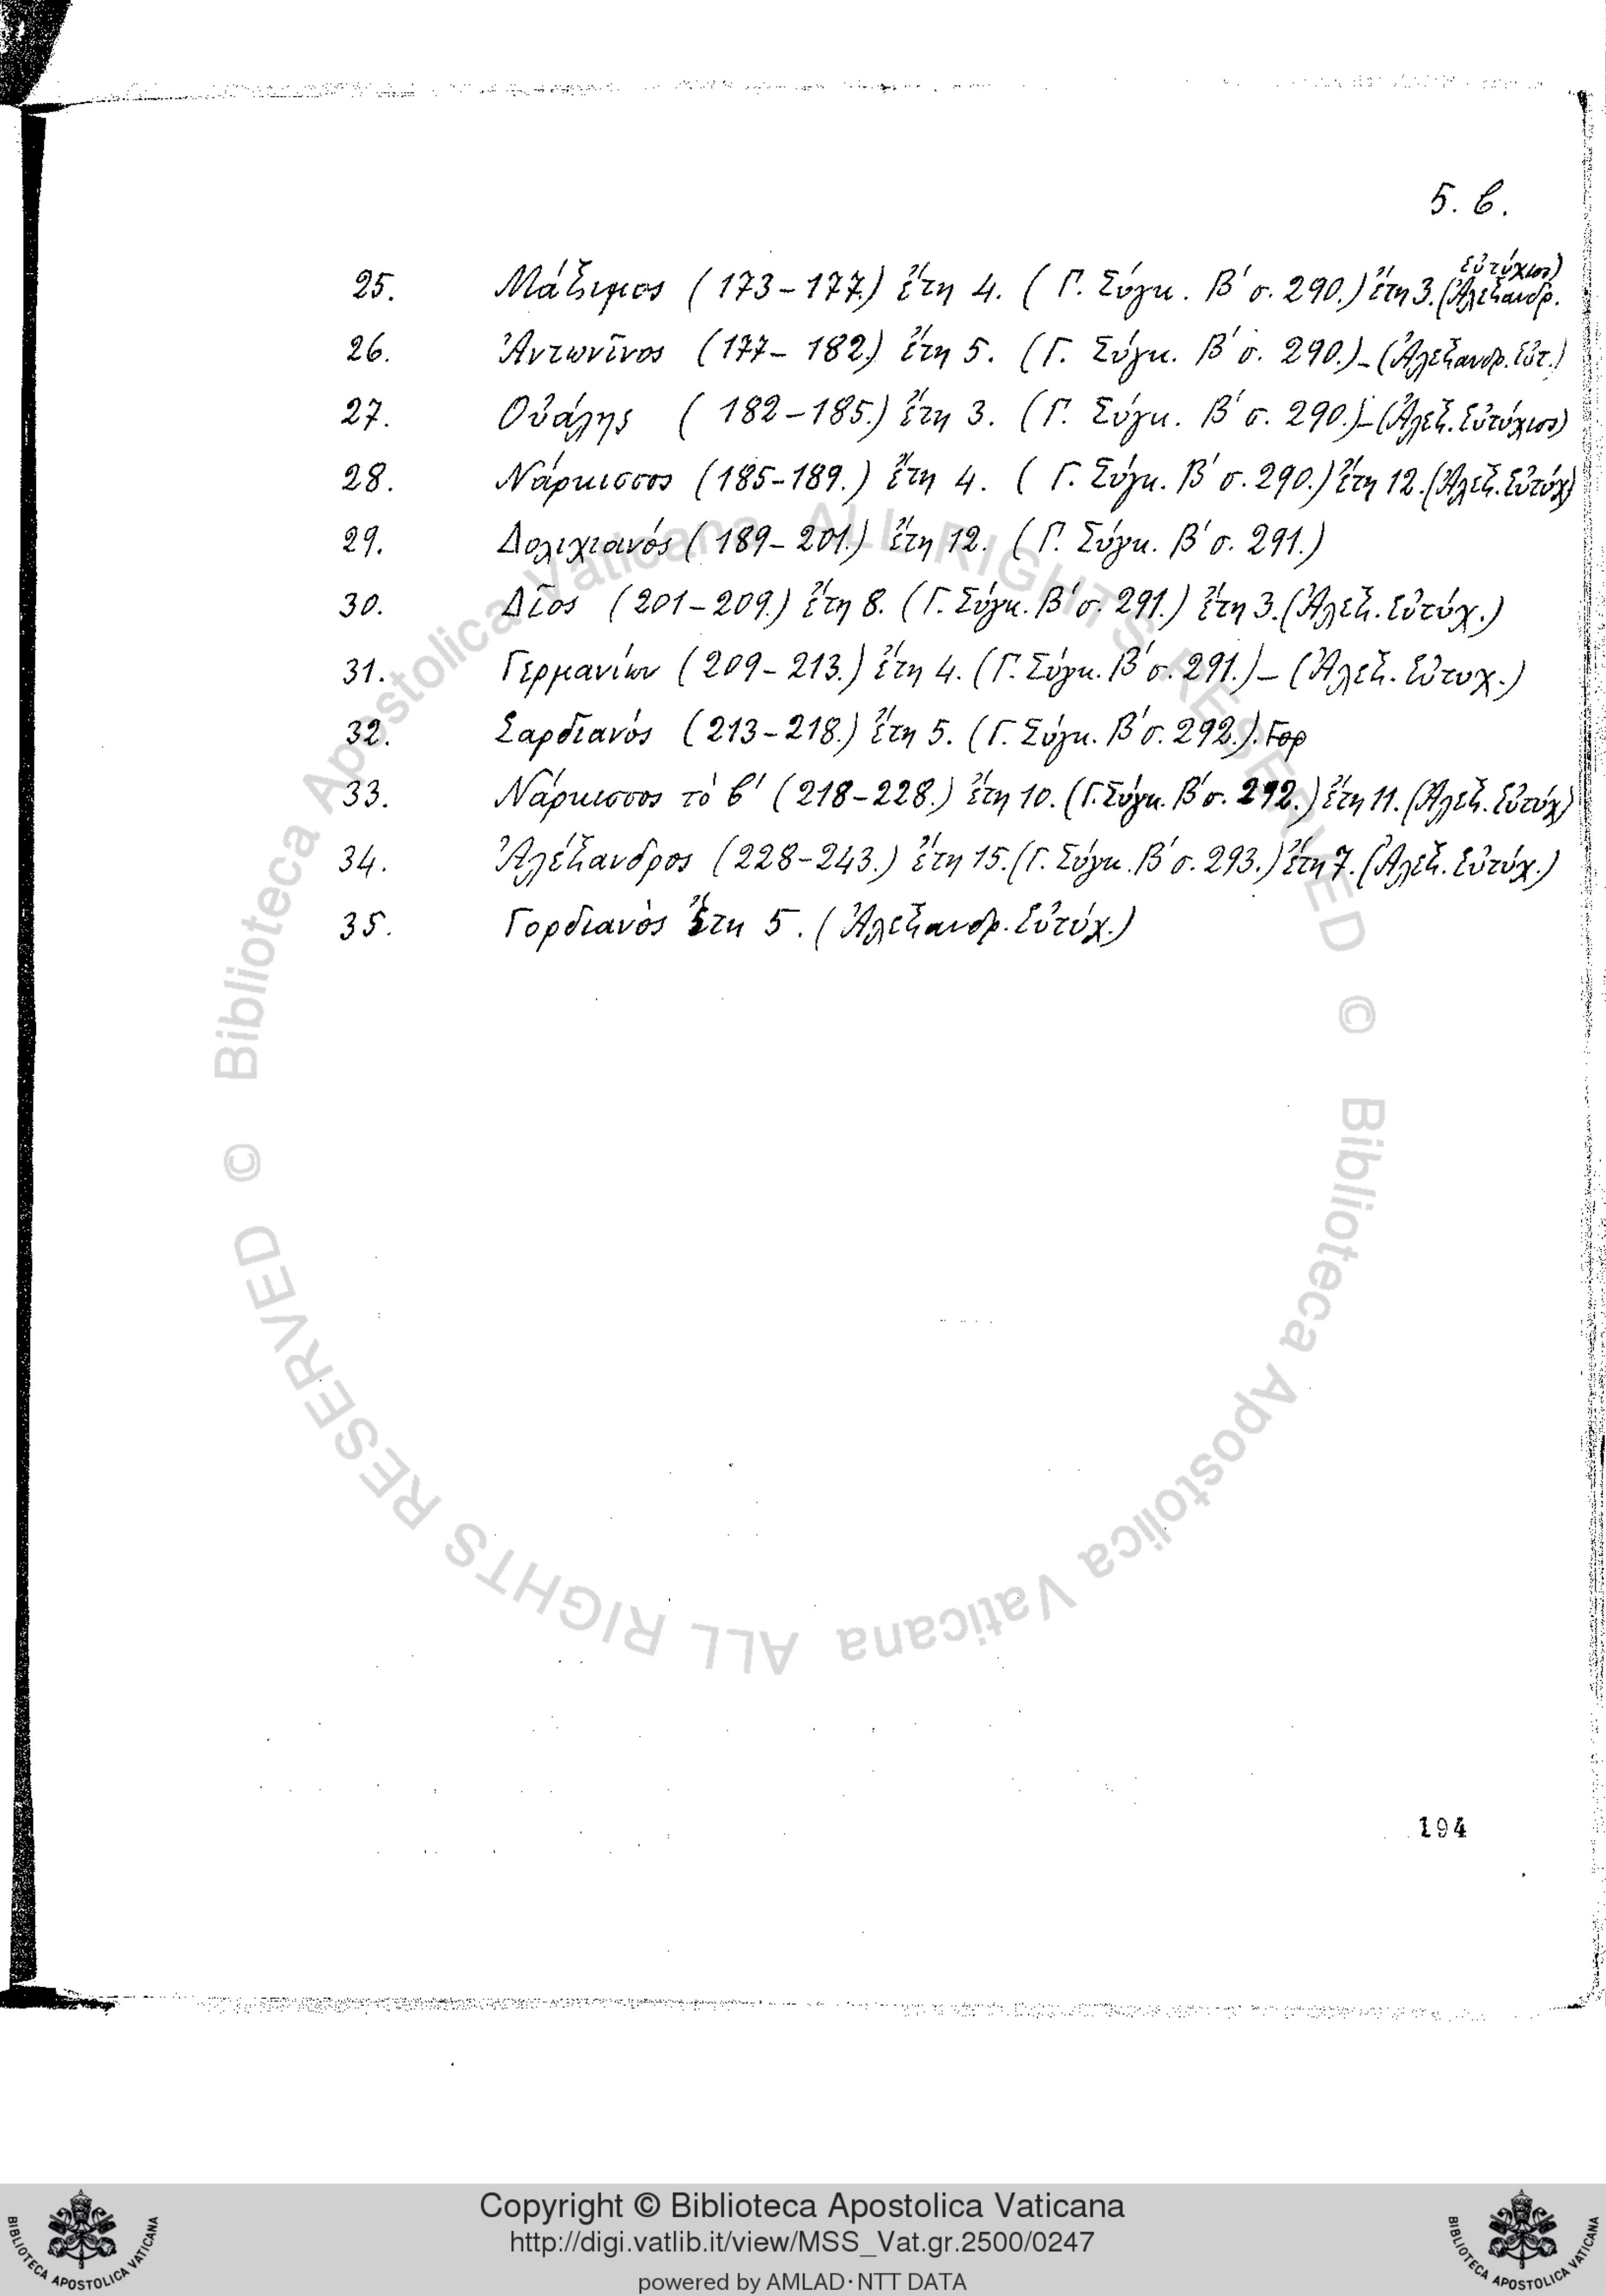 5. β.
25. Μάξιμος (173-177.) ἔτη 4. ( Γ. Σύγκ. Β΄ σ. 290.) ἔτη 3. (Ἀλεξανδρ. Εὐτύχιος)
26. Ἀντωνῖνος (177-182.) ἔτη 5. (Γ. Σύγκ. Β΄ σ. 290.)-(Ἀλεξανδρ. Εὐτ.)
27. Οὐάλης ( 182-185.) ἔτη 3. (Γ. Σύγκ. Β΄ σ. 290.)-(Ἀλεξ. Εὐτύχιος)
28. Νάρκισσος (185-189.) ἔτη 4. ( Γ. Σύγκ. Β΄ σ. 290.) ἔτη 12. (Ἀλεξ. Εὐτύχ)
29. Δολιχιανός ( 189-201.) ἔτη 12. ( Γ. Σύγκ. Β΄ σ. 291.)
30. Δῖος (201-209.) ἔτη 8. (Γ. Σύγκ. Β΄ σ. 291.) ἔτη 3. (Ἀλεξ. Εὐτύχ.)
31. Γερμανίων (209-213.) ἔτη 4. (Γ. Σύγκ. Β΄ σ. 291.)- (Ἀλεξ. Εὐτυχ.)
32. Σαρδιανός (213-218.) ἔτη 5. (Γ. Σύγκ. Β΄ σ. 292.). Γορ
33. Νάρκισσος τὸ β΄ (218-228.) ἔτη 10. (Γ. Σύγκ. Β΄ σ. 292.) ἔτη 11. (Ἀλεξ. Εὐτύχ)
34. Ἀλέξανδρος (228-243.) ἔτη 15. (Γ. Σύγκ. Β΄ σ. 293.) ἔτη 7. (Ἀλεξ. Εὐτύχ.)
35. Γορδιανὸς ἔτη 5. (Ἀλεξανδρ. Εὐτύχ.)
© Biblioteca Apostolica Vaticana ALL RIGHTS RESERVED © Biblioteca Apostolica Vaticana ALL RIGHTS RESERVED
194
Copyright © Biblioteca Apostolica Vaticana
http://digi.vatlib.it/view/MSS_Vat.gr.2500/0247
powered by AMLAD·NTT DATA
BIBLIOTECA APOSTOLICA VATICANA
BIBLIOTECA APOSTOLICA VATICANA